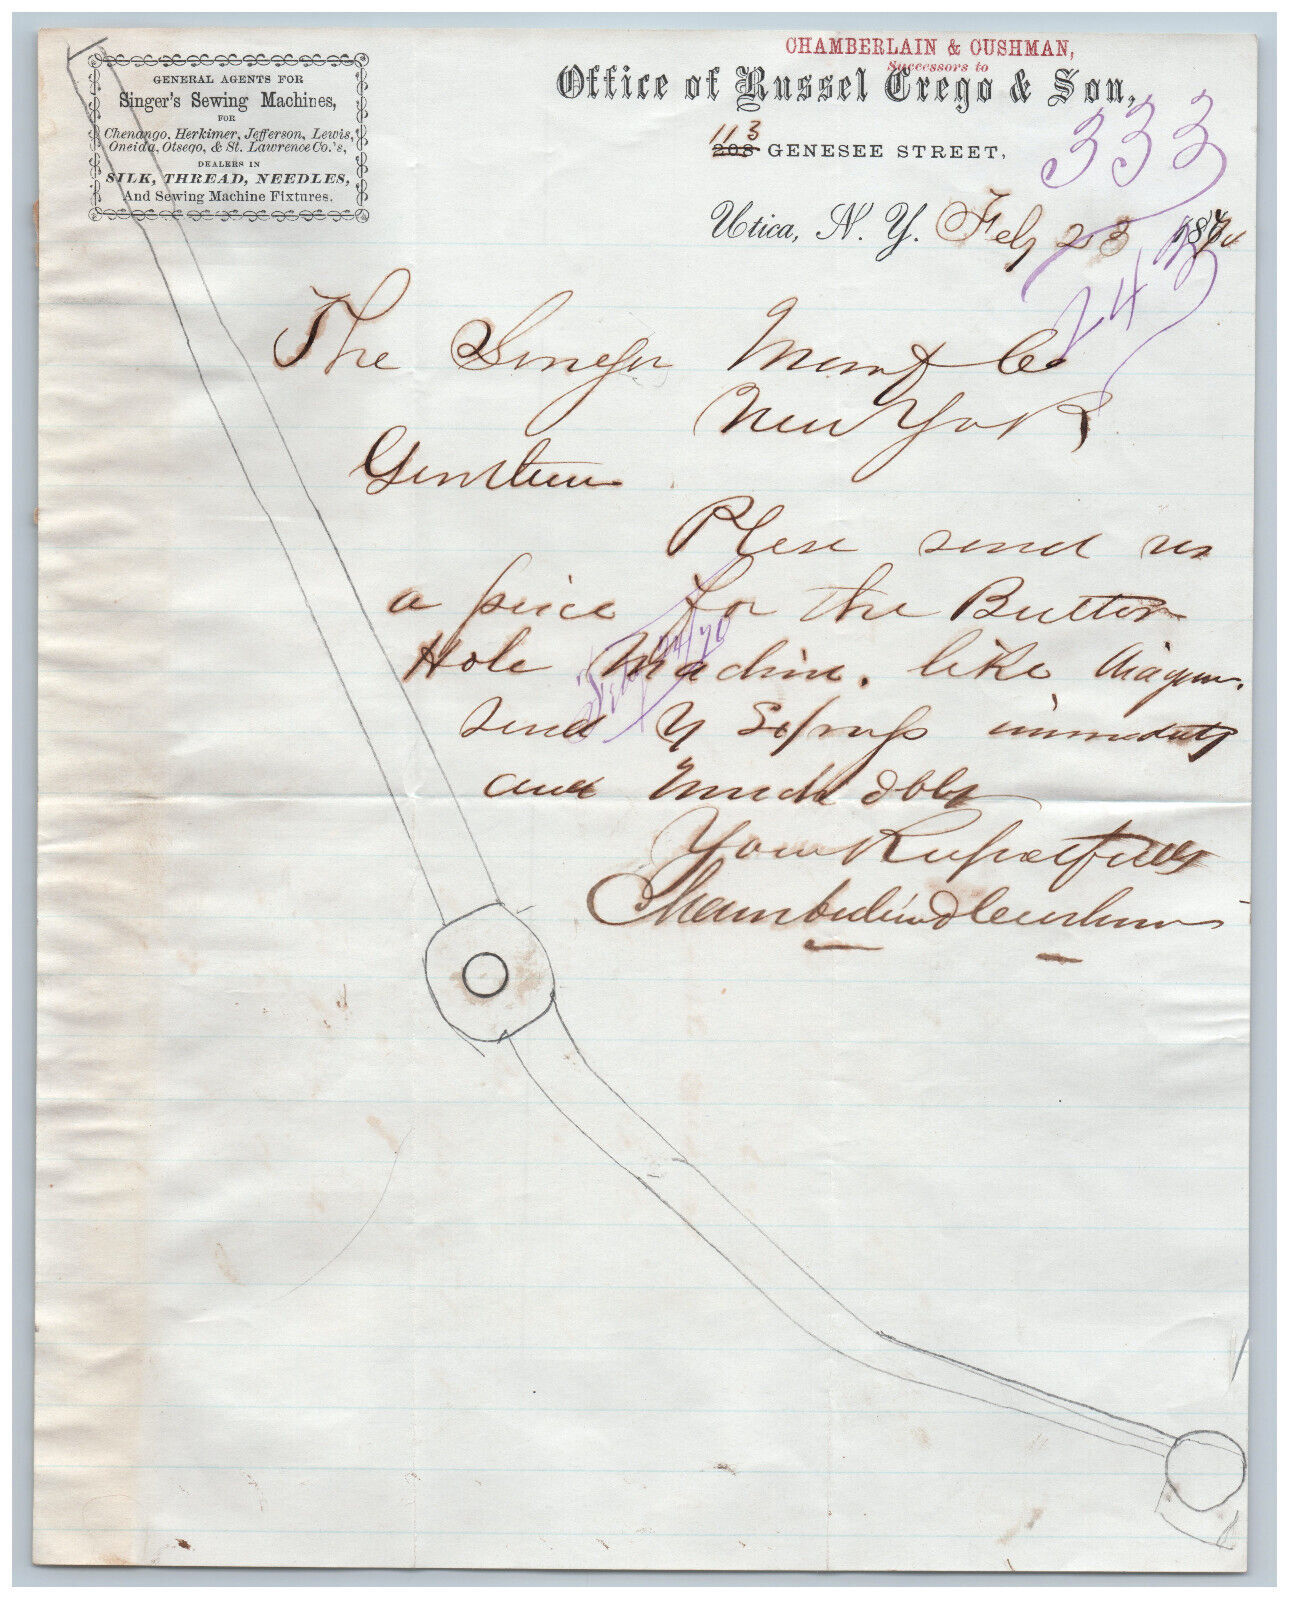 GENERAL AGENTS FOR
Singer's Sewing Machines,
FOR
Chenango, Herkimer, Jefferson, Lewis,
Oneida, Otsego, & St. Lawrence Co.'s,
DEALERS IN
SILK, THREAD, NEEDLES,
And Sewing Machine Fixtures.
CHAMBERLAIN & CUSHMAN,
Successors to
Office of Russel Crego & Son,
113
208 GENESEE STREET,
333
Utica, N. Y. Feby 23 1870
243
The Singer Manf Co
New York
Gentlemen
Please send us
a piece for the Button
Hole Machine. like diagram.
send by Express
and much oblg
Your Respectfully
Chamberlin & Cushman
24/70